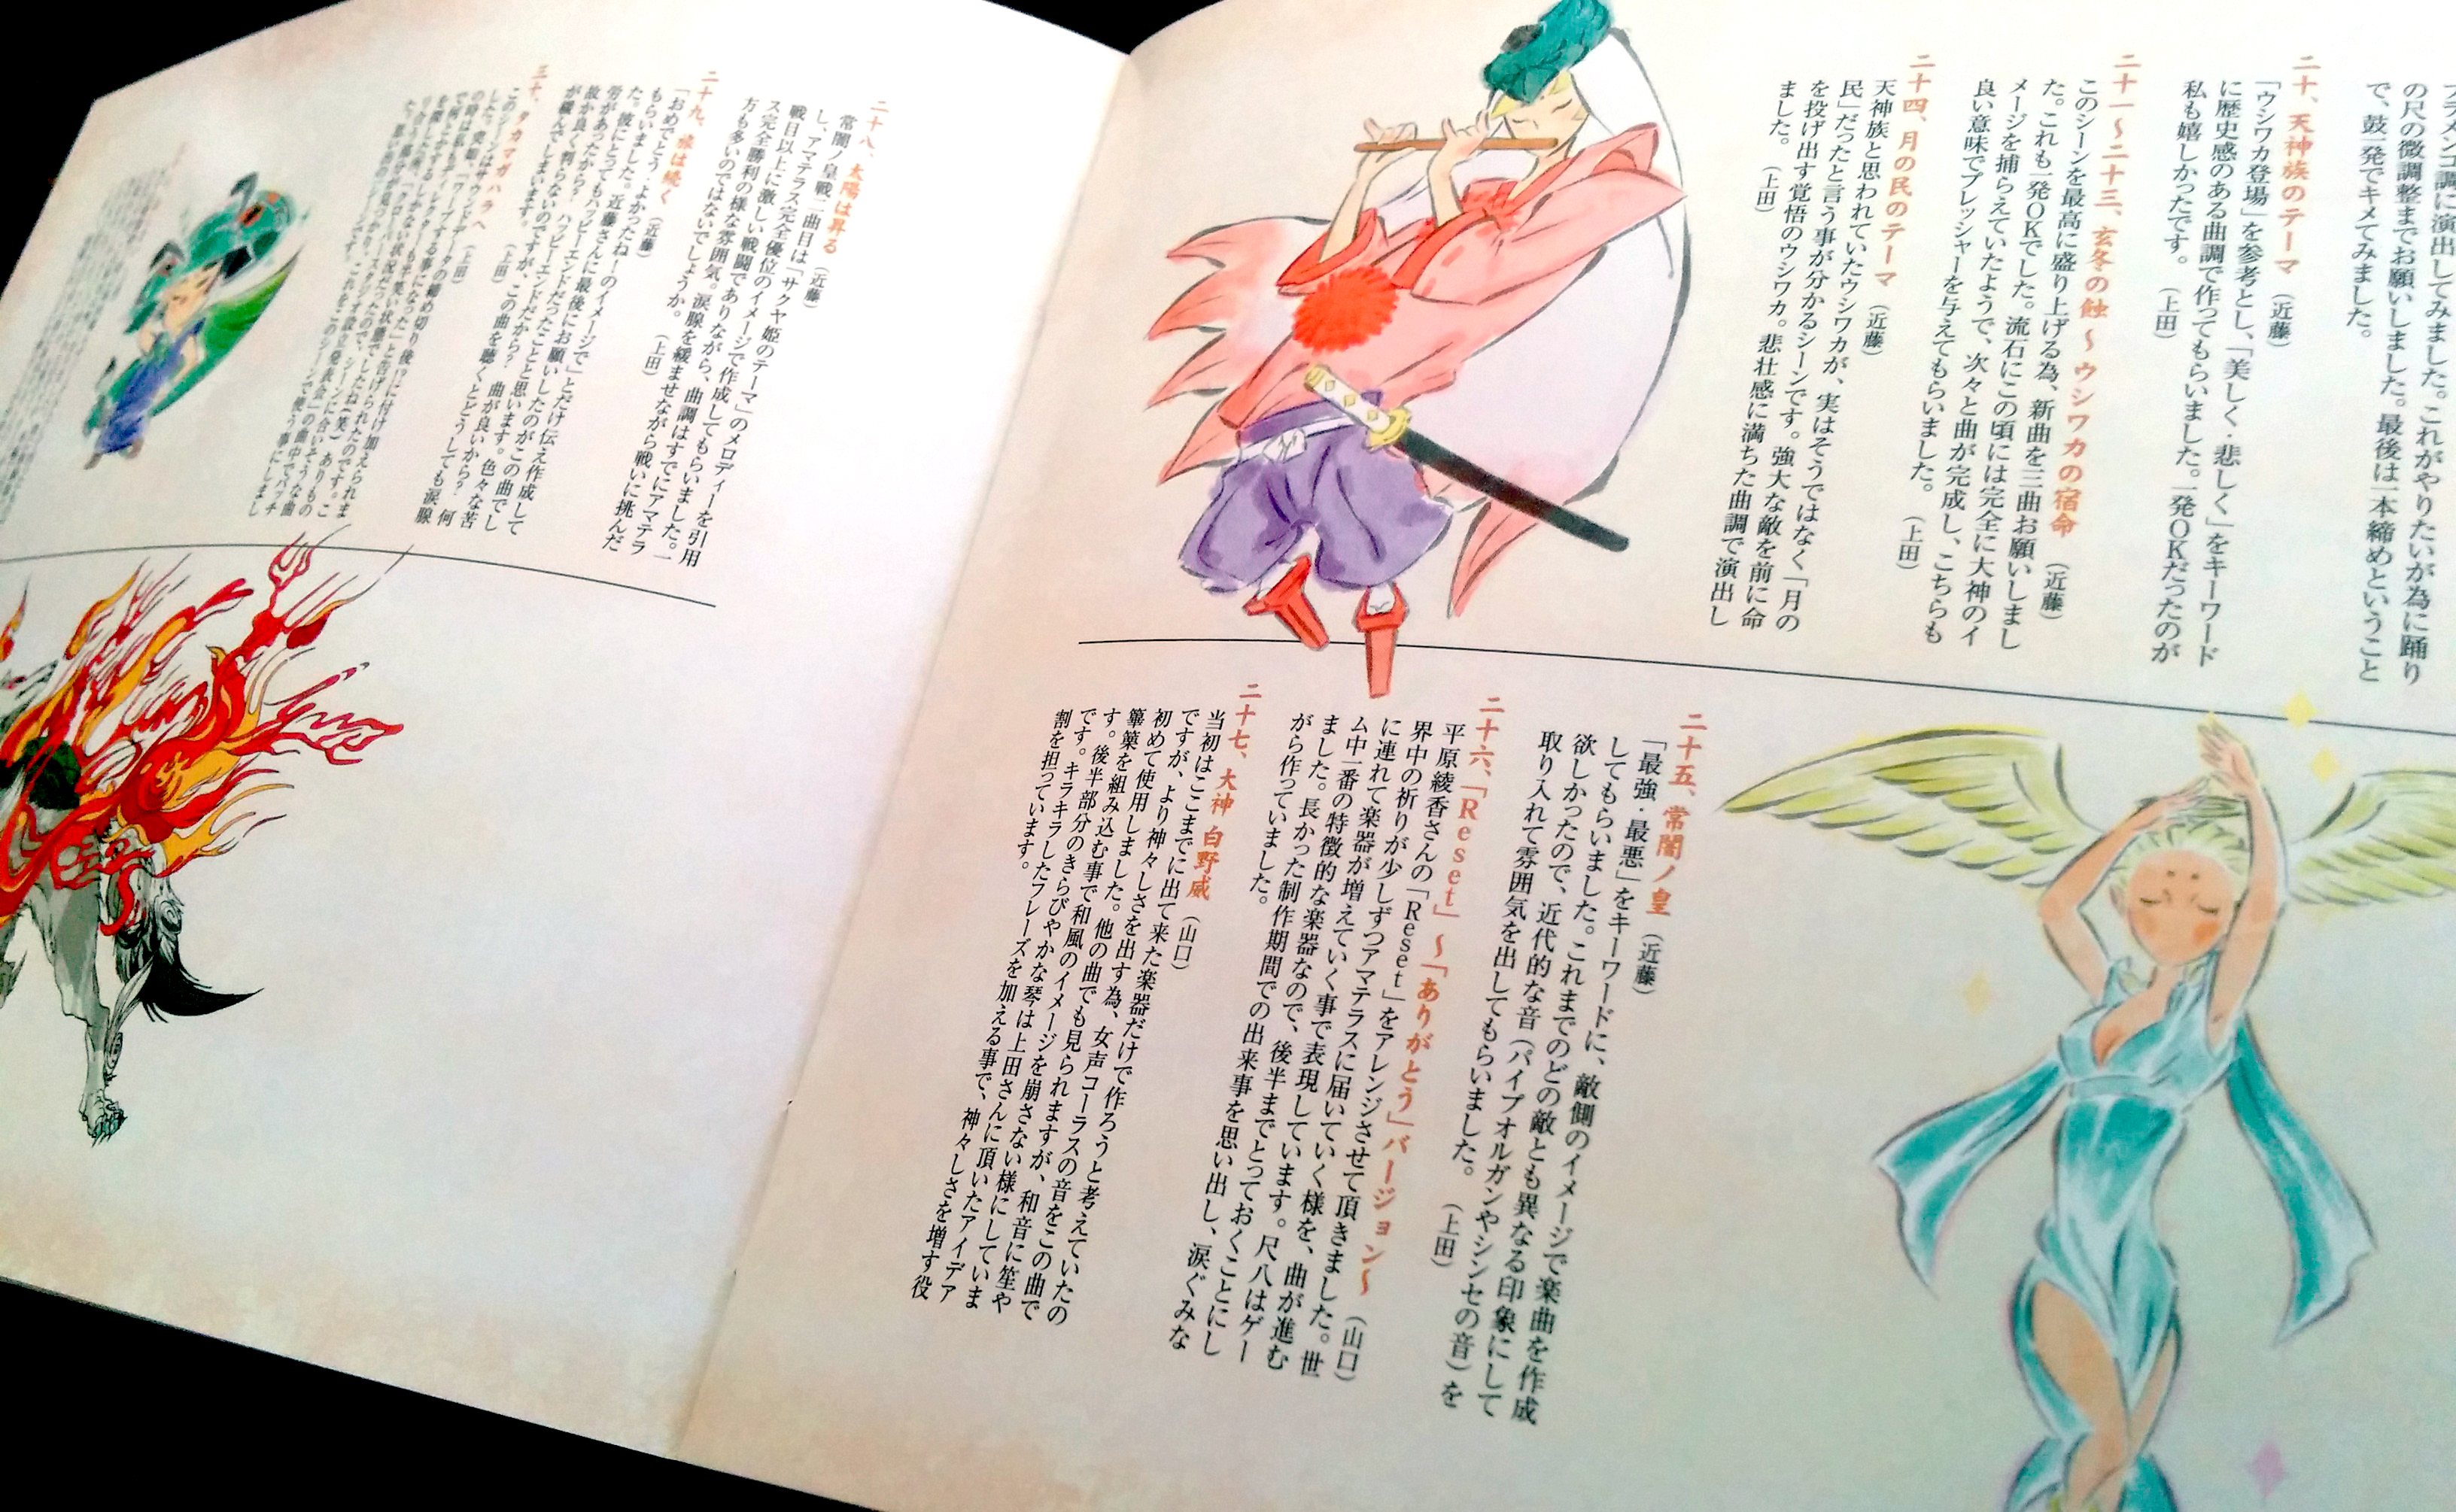 フラメンコ調に演出してみました。これがやりたいが為に踊り
の尺の微調整までお願いしました。最後は一本締めということ
で、鼓一発でキメてみました。
二十、天神族のテーマ（近藤）
「ウシワカ登場」を参考とし、「美しく・悲しく」をキーワード
に歴史感のある曲調で作ってもらいました。一発OKだったのが
私も嬉しかったです。（上田）
二十一～二十三、玄冬の蝕 ～ウシワカの宿命（近藤）
このシーンを最高に盛り上げる為、新曲を三曲お願いしまし
た。これも一発OKでした。流石にこの頃には完全に大神のイ
メージを捕らえていたようで、次々と曲が完成し、こちらも
良い意味でプレッシャーを与えてもらいました。（上田）
二十四、月の民のテーマ（近藤）
天神族と思われていたウシワカが、実はそうではなく「月の
民」だったと言う事が分かるシーンです。強大な敵を前に命
を投げ出す覚悟のウシワカ。悲壮感に満ちた曲調で演出し
ました。（上田）
二十五、常闇ノ皇（近藤）
「最強・最悪」をキーワードに、敵側のイメージで楽曲を作成
してもらいました。これまでのどの敵とも異なる印象にして
欲しかったので、近代的な音（パイプオルガンやシンセの音）を
取り入れて雰囲気を出してもらいました。（上田）
二十六、「Reset」～「ありがとう」バージョン～（山口）
平原綾香さんの「Reset」をアレンジさせて頂きました。世
界中の祈りが少しずつアマテラスに届いていく様を、曲が進む
に連れて楽器が増えていく事で表現しています。尺八はゲー
ム中一番の特徴的な楽器なので、後半までとっておくことにし
ました。長かった制作期間での出来事を思い出し、涙ぐみな
がら作っていました。
二十七、大神 白野威（山口）
当初はここまでに出て来た楽器だけで作ろうと考えていたの
ですが、より神々しさを出す為、女声コーラスの音をこの曲で
初めて使用しました。他の曲でも見られますが、和音に笙や
篳篥を組み込む事で和風のイメージを崩さない様にしていま
す。後半部分のきらびやかな琴は上田さんに頂いたアイデア
です。キラキラしたフレーズを加える事で、神々しさを増す役
割を担っています。
二十八、太陽は昇る（近藤）
常闇ノ皇戦二曲目は「サクヤ姫のテーマ」のメロディーを引用
し、アマテラス完全優位のイメージで作成してもらいました。一
戦目以上に激しい戦闘でありながら、曲調はすでにアマテラ
ス完全勝利の様な雰囲気。涙腺を緩ませながら戦いに挑んだ
方も多いのではないでしょうか。（上田）
二十九、旅は続く（近藤）
「おめでとう・よかったねーのイメージで」とだけ伝え作成して
もらいました。近藤さんに最後にお願いしたのがこの曲でし
た。彼にとってもハッピーエンドだったことと思います。色々な苦
労があったからか？ハッピーエンドだから？曲が良いから？何
故か良く判らないのですが、この曲を聴くとどうしても涙腺
が緩んでしまいます。（上田）
三十、タカマガハラへ（上田）